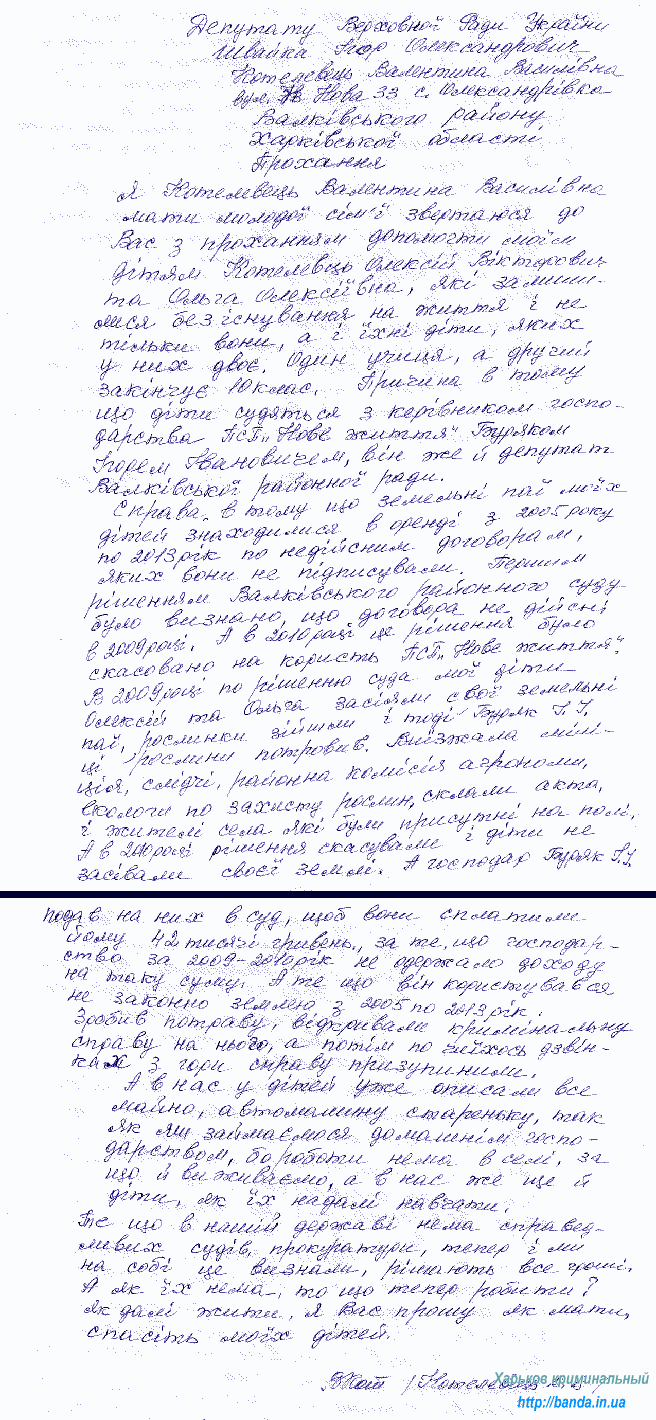 Депутату Верховної Ради України
Швайка Ігор Олександрович
Котелевець Валентина Василівна
вул. Нова 33 с. Олександрівка
Валківського району
Харківської області
Прохання
Я Котелевець Валентина Василівна
мати молодої сім'ї звертаюся до
Вас з проханням допомогти моїм
дітям Котелевець Олексій Вікторович
та Ольга Олексіївна, які залиши-
лися без існування на життя і не
тільки вони, а і їхні діти, яких
у них двоє. Один учиця, а другий
закінчує 10 клас. Причина в тому
що діти судяться з керівником госпо-
дарства ПСП "Нове життя" Буряком
Ігорем Івановичем, він же й депутат
Валківської районної ради.
Справа в тому що земельні паї моїх
дітей знаходилися в оренді з 2005 року
по 2013 рік по недійсним договорам,
яких вони не підписували. Першим
рішенням Валківського районного суду
було визнано, що договора не дійсні
в 2009 році. А в 2010 році це рішення було
скасовано на користь ПСП "Нове життя".
В 2009 році по рішенню суда мої діти
Олексій та Ольга засіяли свої земельні
паї, рослинки зійшли і тоді Буряк І.І.
ці рослини потровив. Виїзжала мілі-
ція, слідчі, районна комісія агрономи,
екологи по захисту рослин, склали акта,
і жителі села які були присутні на полі.
А в 2010 році рішення скасували і діти не
засівали своєї землі. А господар Буряк І.І.
подав на них в суд, щоб вони сплатили
йому 42 тисячі гривень, за те, що господар-
ство за 2009-2010 рік не одержало доходу
на таку суму. А те що він користувався
не законно землею з 2005 по 2013 рік.
Зробив потраву, відкривали кримінальну
справу на нього, а потім по чиїхось дзвін-
ках з гори справу призупинили.
А в нас у дітей уже описали все
майно, автомашину стареньку, так
як ми займаємося домашнім госпо-
дарством, бо роботи нема в селі, за
що й виживаємо, а в нас же ще й
діти, як їх надалі навчати.
Те що в нашій державі нема справед-
ливих судів, прокуратури, тепер і ми
на собі це визнали, рішають все гроші.
А як їх нема, то що тепер робити?
Як далі жити. Я Вас прошу як мати,
спасіть моїх дітей.
Харьков криминальный
http://banda.in.ua